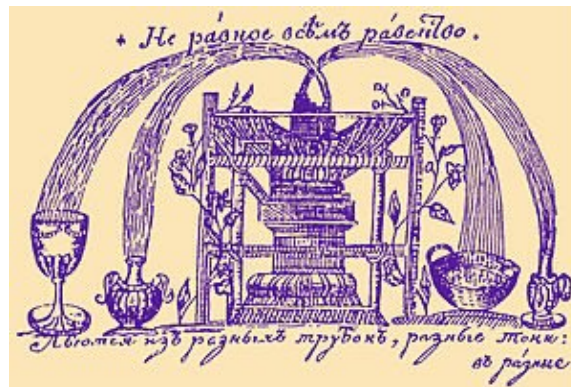 + Не ра́вное всѣ́мъ ра́венство.
Льются изъ разныхъ трубокъ, разные токи:
въ ра́зные